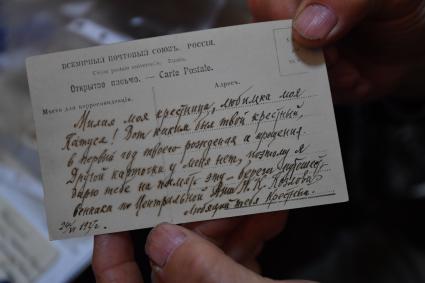 ВСЕМІРНЫЙ ПОЧТОВЫЙ СОЮЗЪ. РОССІЯ.
Открытое письмо. — Carte Postale.
Мѣсто для корреспонденціи.
Адресъ.
Милая моя крестница, любимка моя
Катуся! Вот каким был твой крестный
в первый год твоего рождения и крещения.
Другой карточки у меня нет, поэтому я
дарю тебе на память эту — береги
по Центральной Н. К. Козлова
Любящий тебя Крестный.